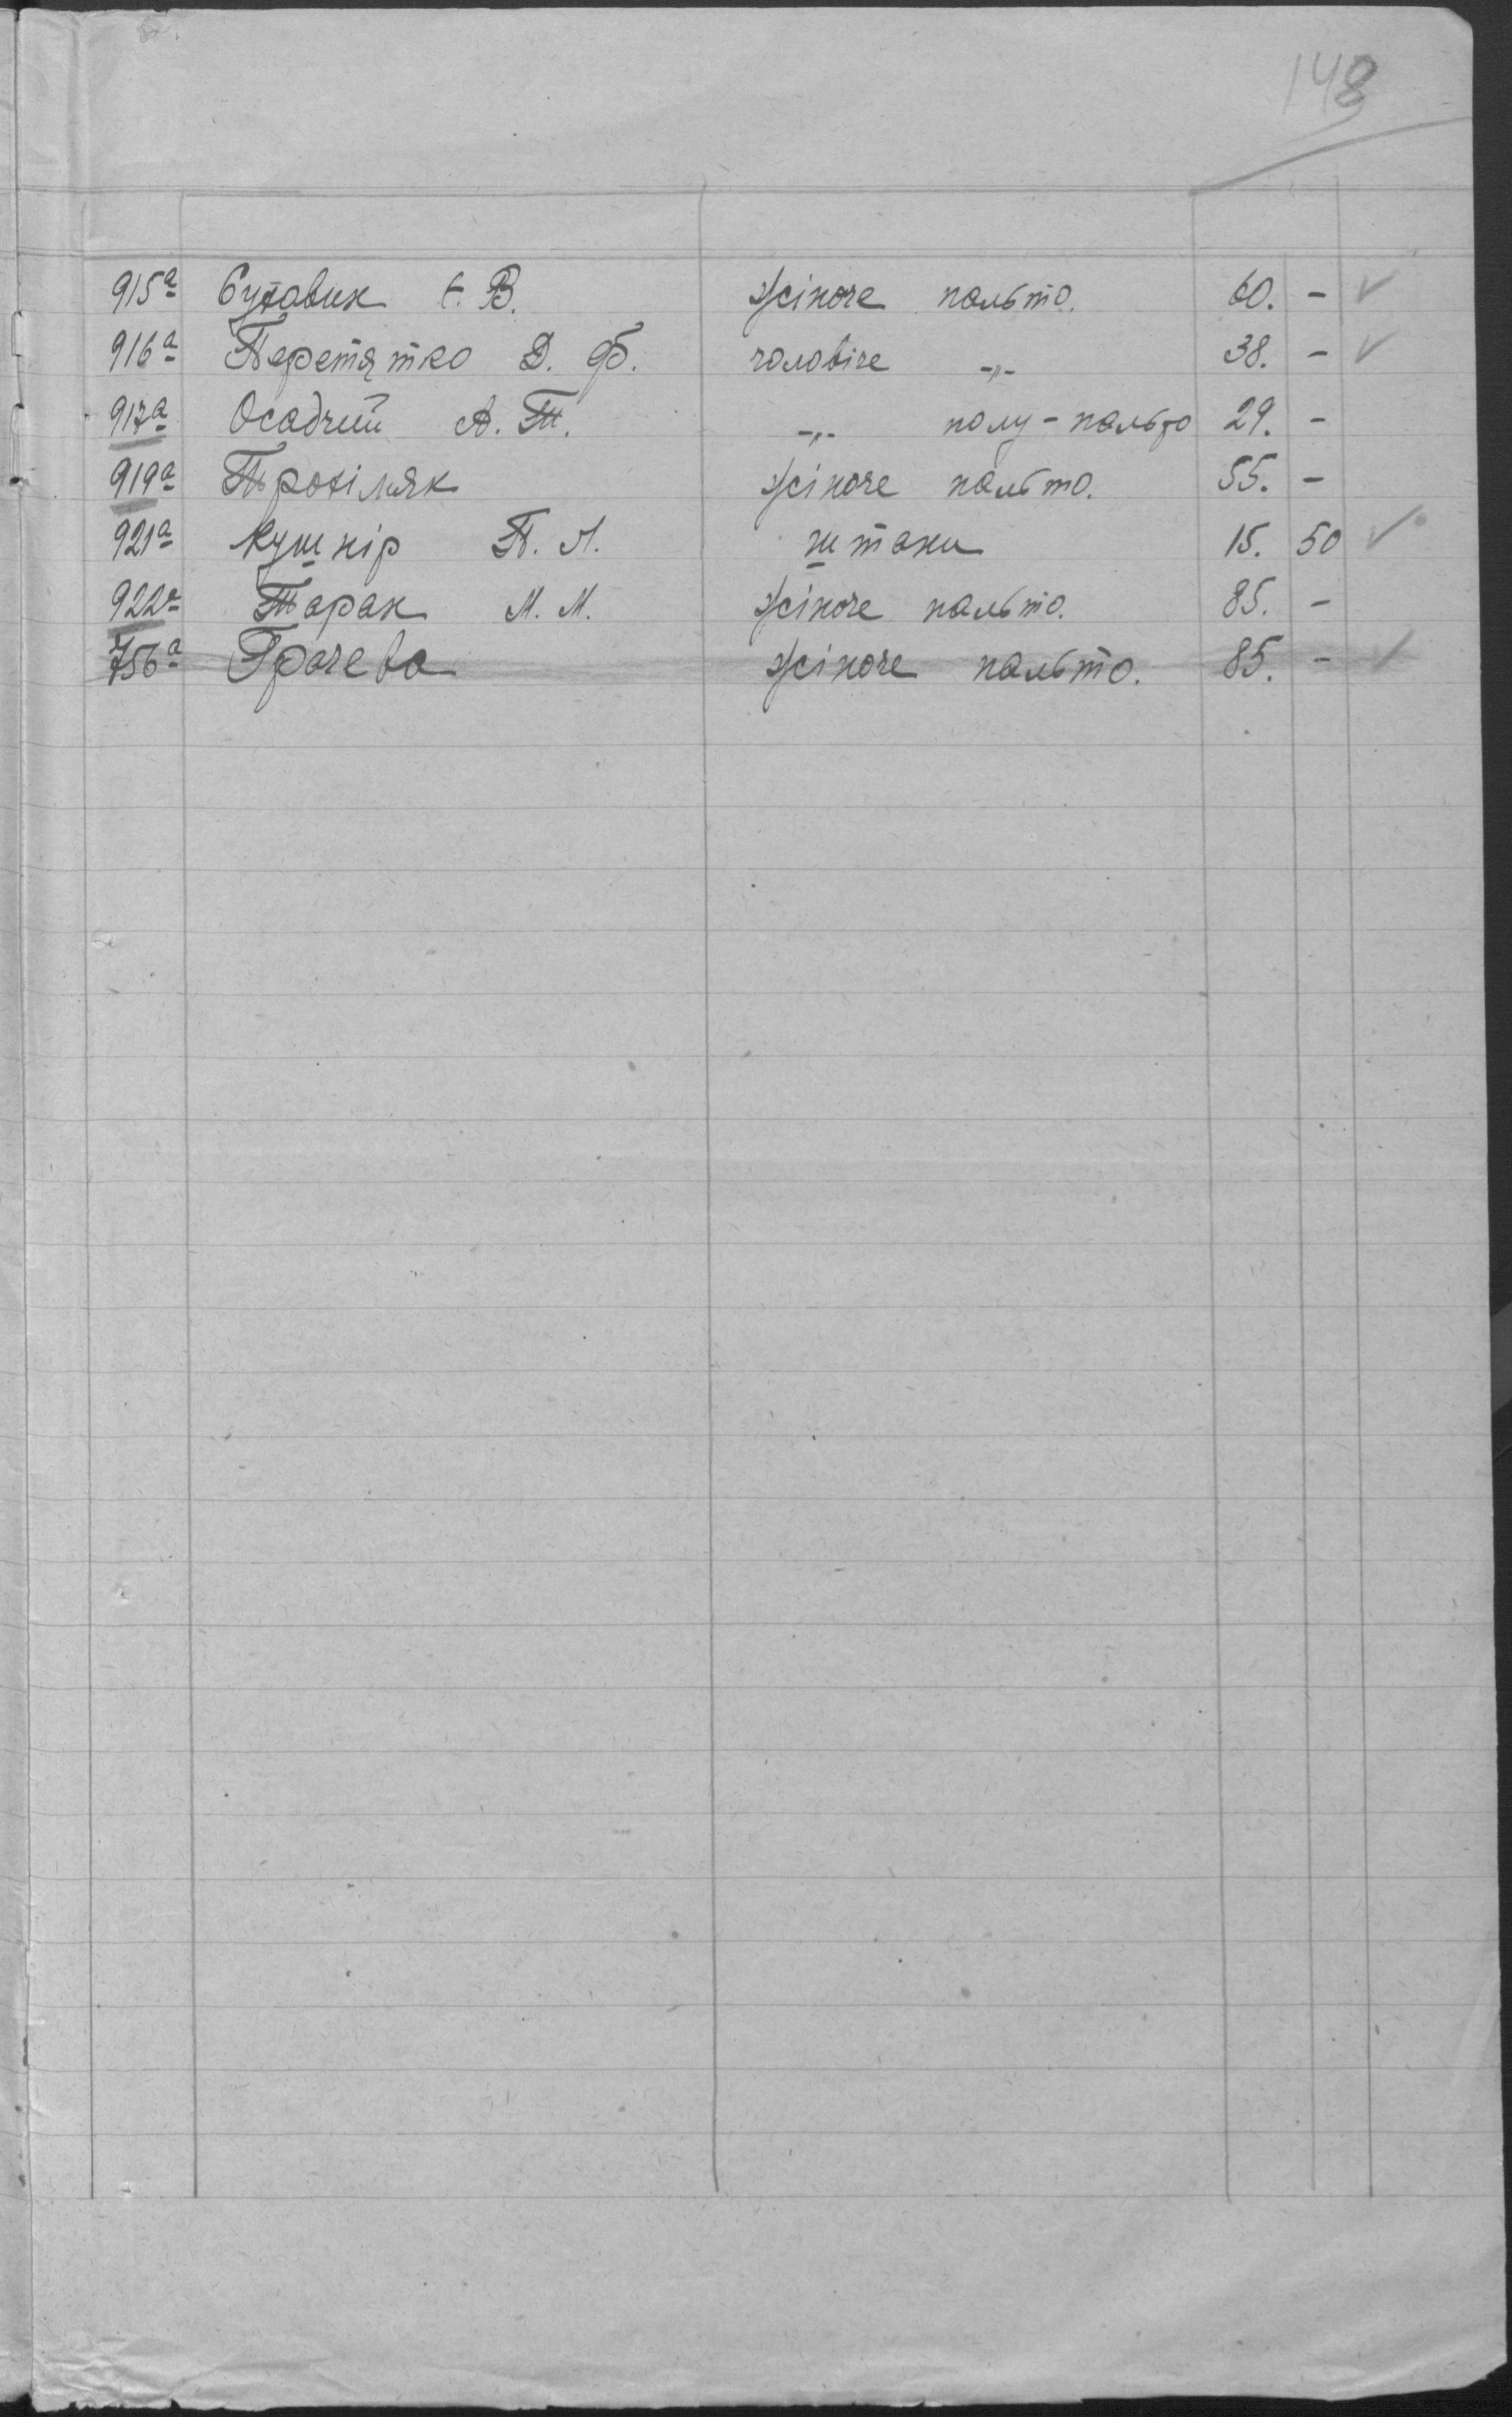 148
915а В. жіноче пальто. 60. -
916а Перетятко Д. Ф. чоловіче -„- 38. -
917а Осадчий А. Т. -„- полу-пальто 29. -
919а жіноче пальто. 55. -
921а Кушнір П. Л. штани 15. 50
922а Тарак М. М. жіноче пальто. 85. -
756а Грачева жіноче пальто. 85. -